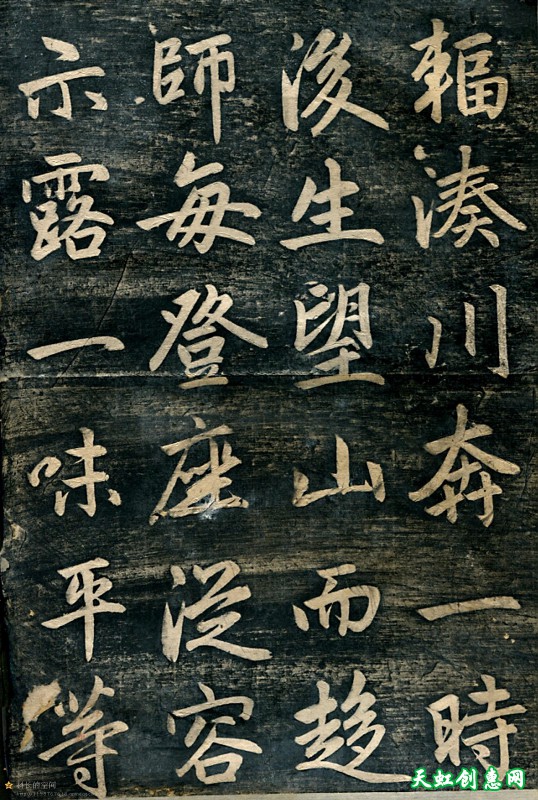 輻湊川奔一時
後生望山而趍
師每登座從容
示露一味平等
天虹创惠网